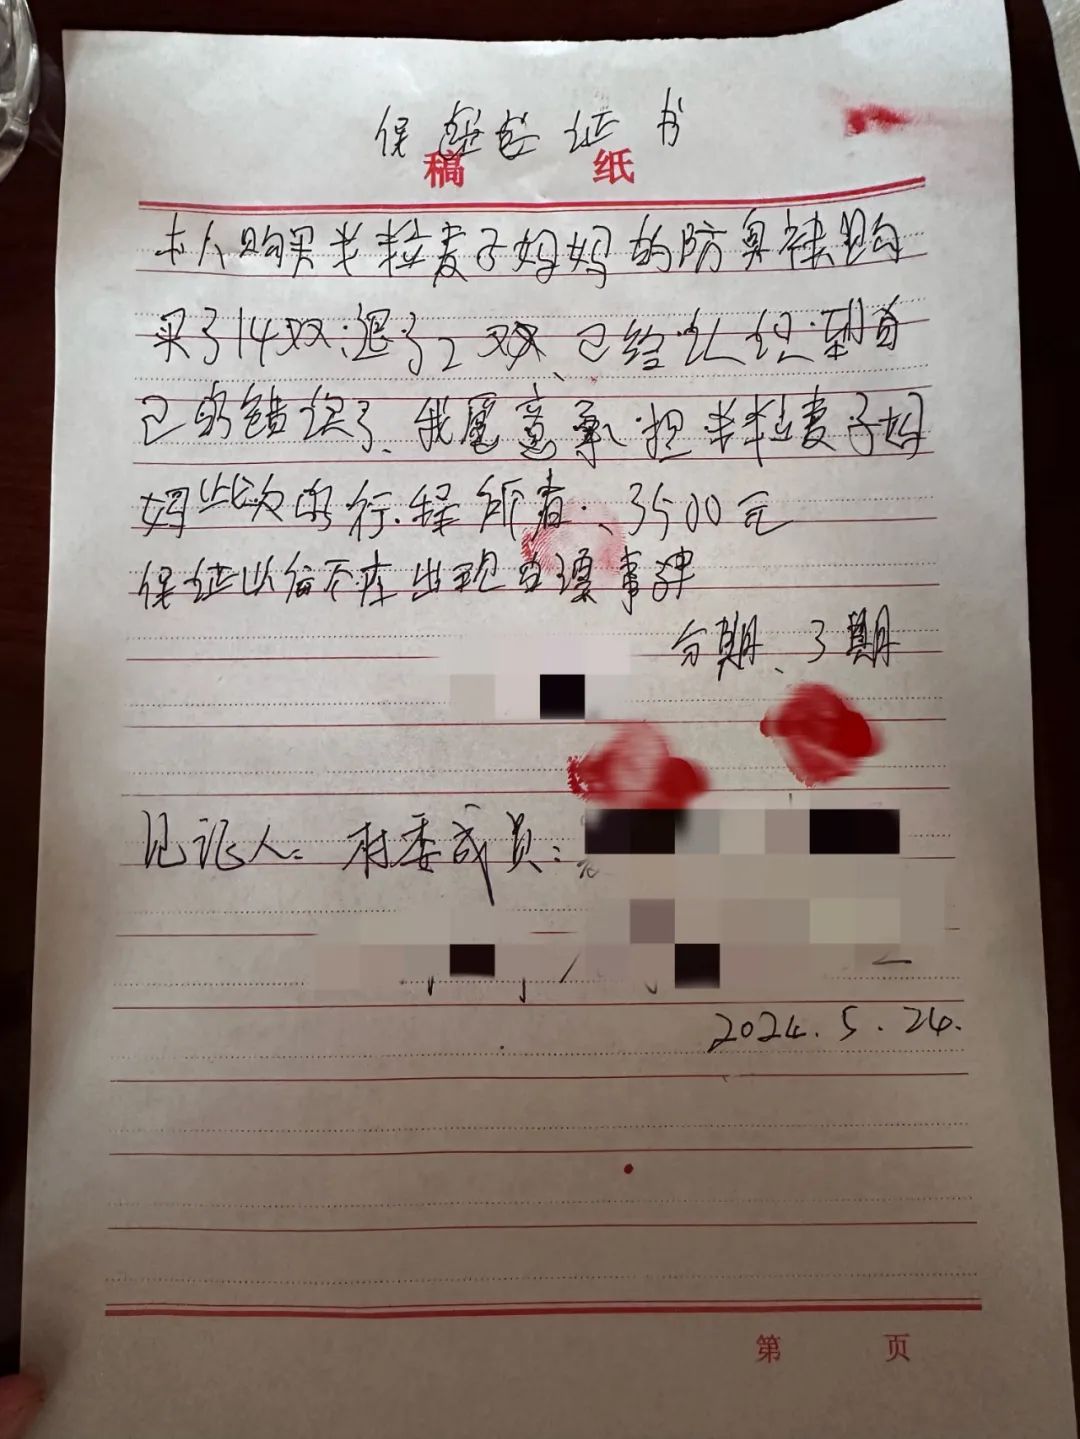 保证书
稿 纸
本人购买半粒麦子妈妈的防臭袜购
买了14双;退了2双、已经认识到自
己的错误了、我愿意承担半粒麦子妈
妈此次的行程所有、3500元
保证以后不在出现自理事件
分期、3期
见证人: 村委成员:
2024.5.24.
第 页